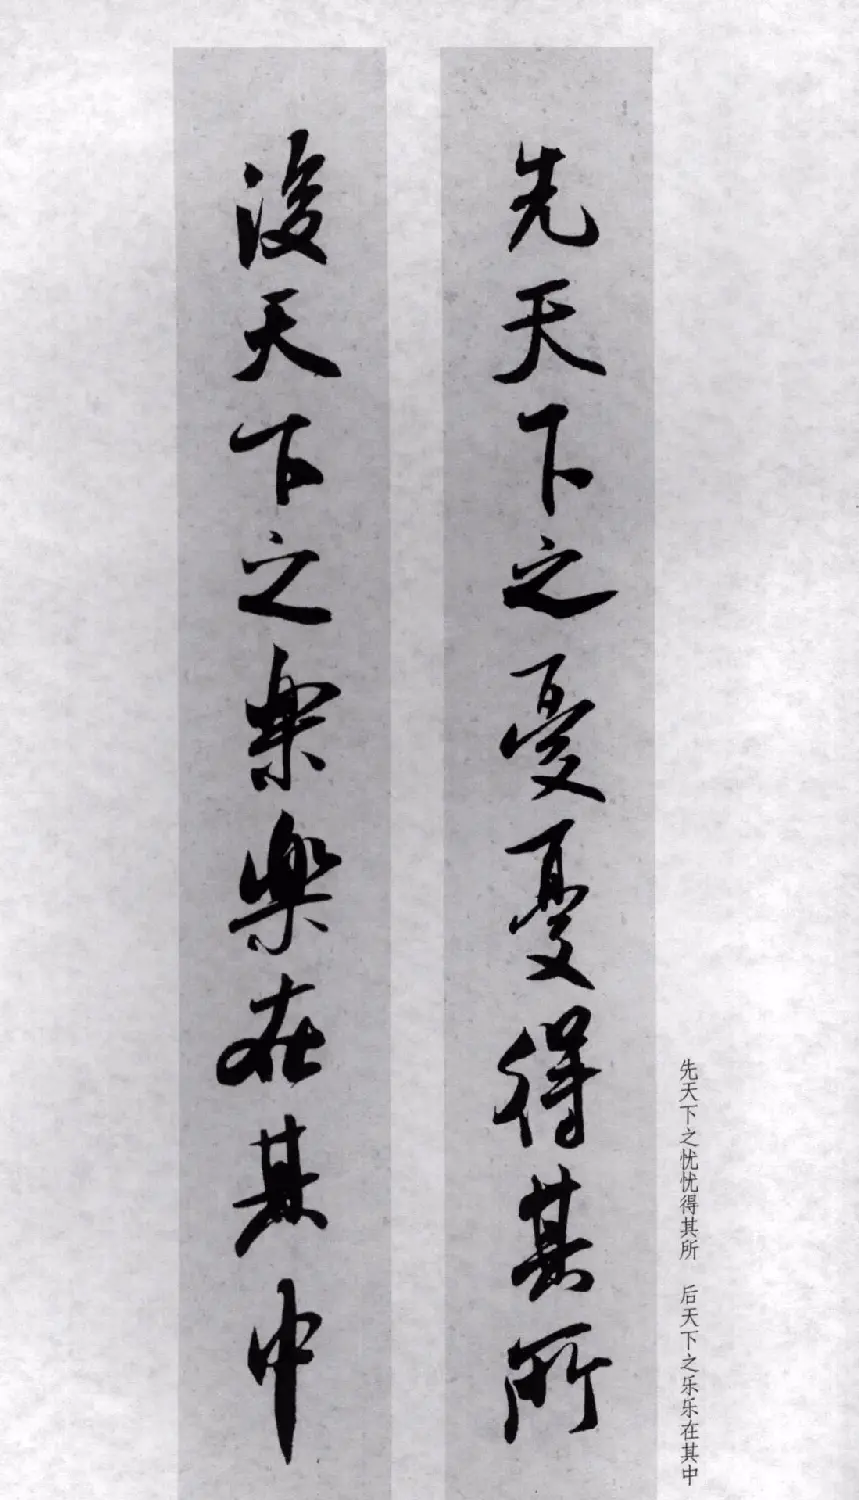 先天下之憂憂得其所
後天下之樂樂在其中
先天下之忧忧得其所　后天下之乐乐在其中